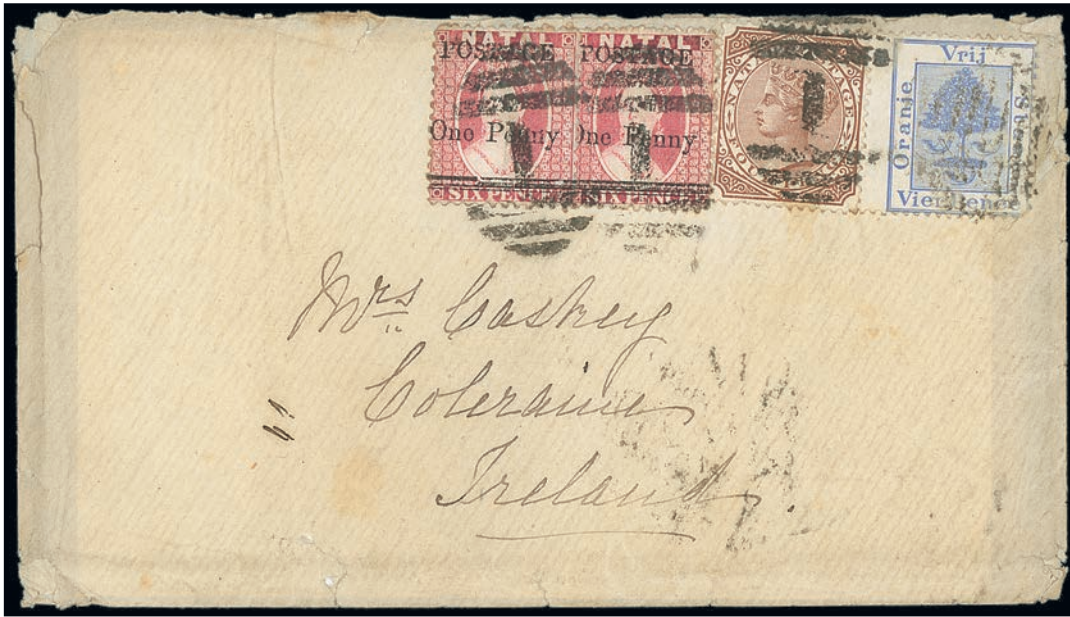 NATAL
POSTAGE
One Penny
SIX PENCE
NATAL
POSTAGE
One Penny
SIX PENCE
NATAL POSTAGE
1
Oranje Vrij
Mrs Caskey
Coleraine
Ireland